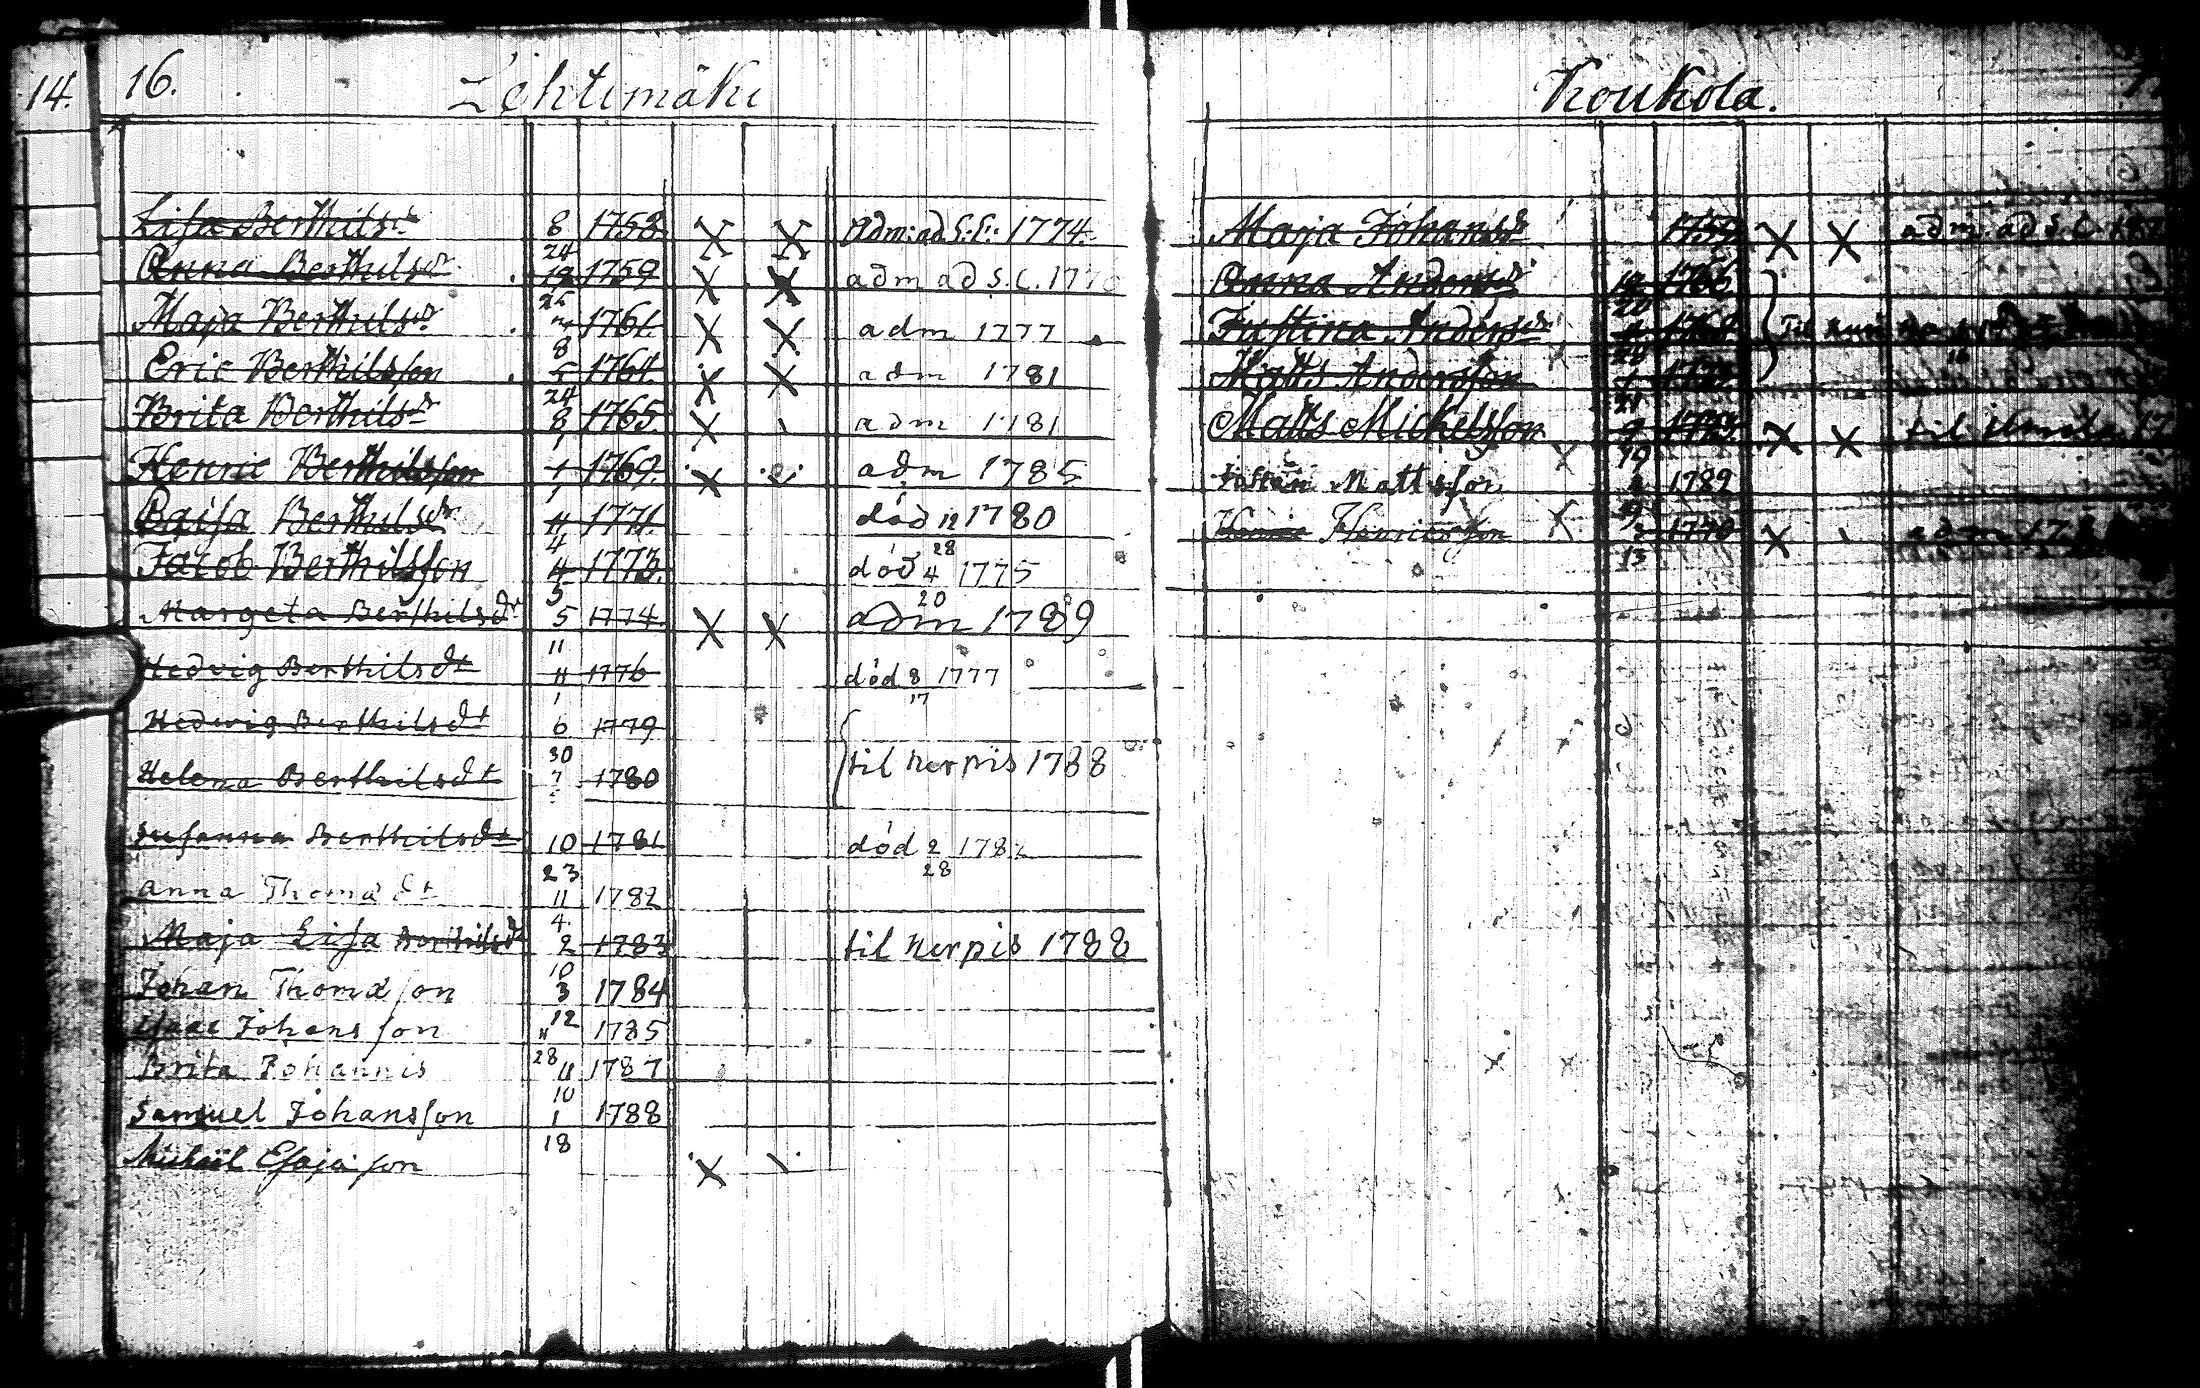 14.
16.
Lehtimäki
Lisa Berthilsdr 8 1758 X X Adm: ad S: C: 1774.
24
Anna Berthilsdr 12 1759 X X adm ad S. C. 1776
25
Maja Berthilsdr 1761 X X adm 1777
8
Eric Berthilsson 5 1764 X X adm 1781
24
Brita Berthilsdr 8 1765 X adm 1781
1
Henric Berthilsson 1 1769 X adm 1785
1
Caisa Berthilsdr 11 1771 död 12 1780
4 28
Jacob Berthilsson 4 1773 död 4 1775
5 20
Margeta Berthilsdr 5 1774 X X adm 1789
11
Hedvig Berthilsdr 11 1776 död 8 1777
1 17
Hedwig Berthilsdr 6 1779
30 til Nerpis 1788
Helena Berthilsdr 7 1780
Susanna Berthilsdr 10 1781 död 2 1782
23 28
anna Thomasdr 11 1782
4
Maja Lisa Berthilsdr 2 1783 til Nerpis 1788
10
Johan Thomasson 3 1784
12
Isaac Johansson 11 1785
28
Brita Johannis 11 1787
10
Samuel Johansson 1 1788
18
Michaël Esajasson X
Koukola.
Maja Johansdr 1759 X X adm. ad S. C.
Anna Andersdr 12 1766
20
Justina Andersdr
26
Matts Andersson
21
Matts Mickelsson 9 X X til
19
Matsson 1789
9
Henric Henricsson 2 1770 X adm
13